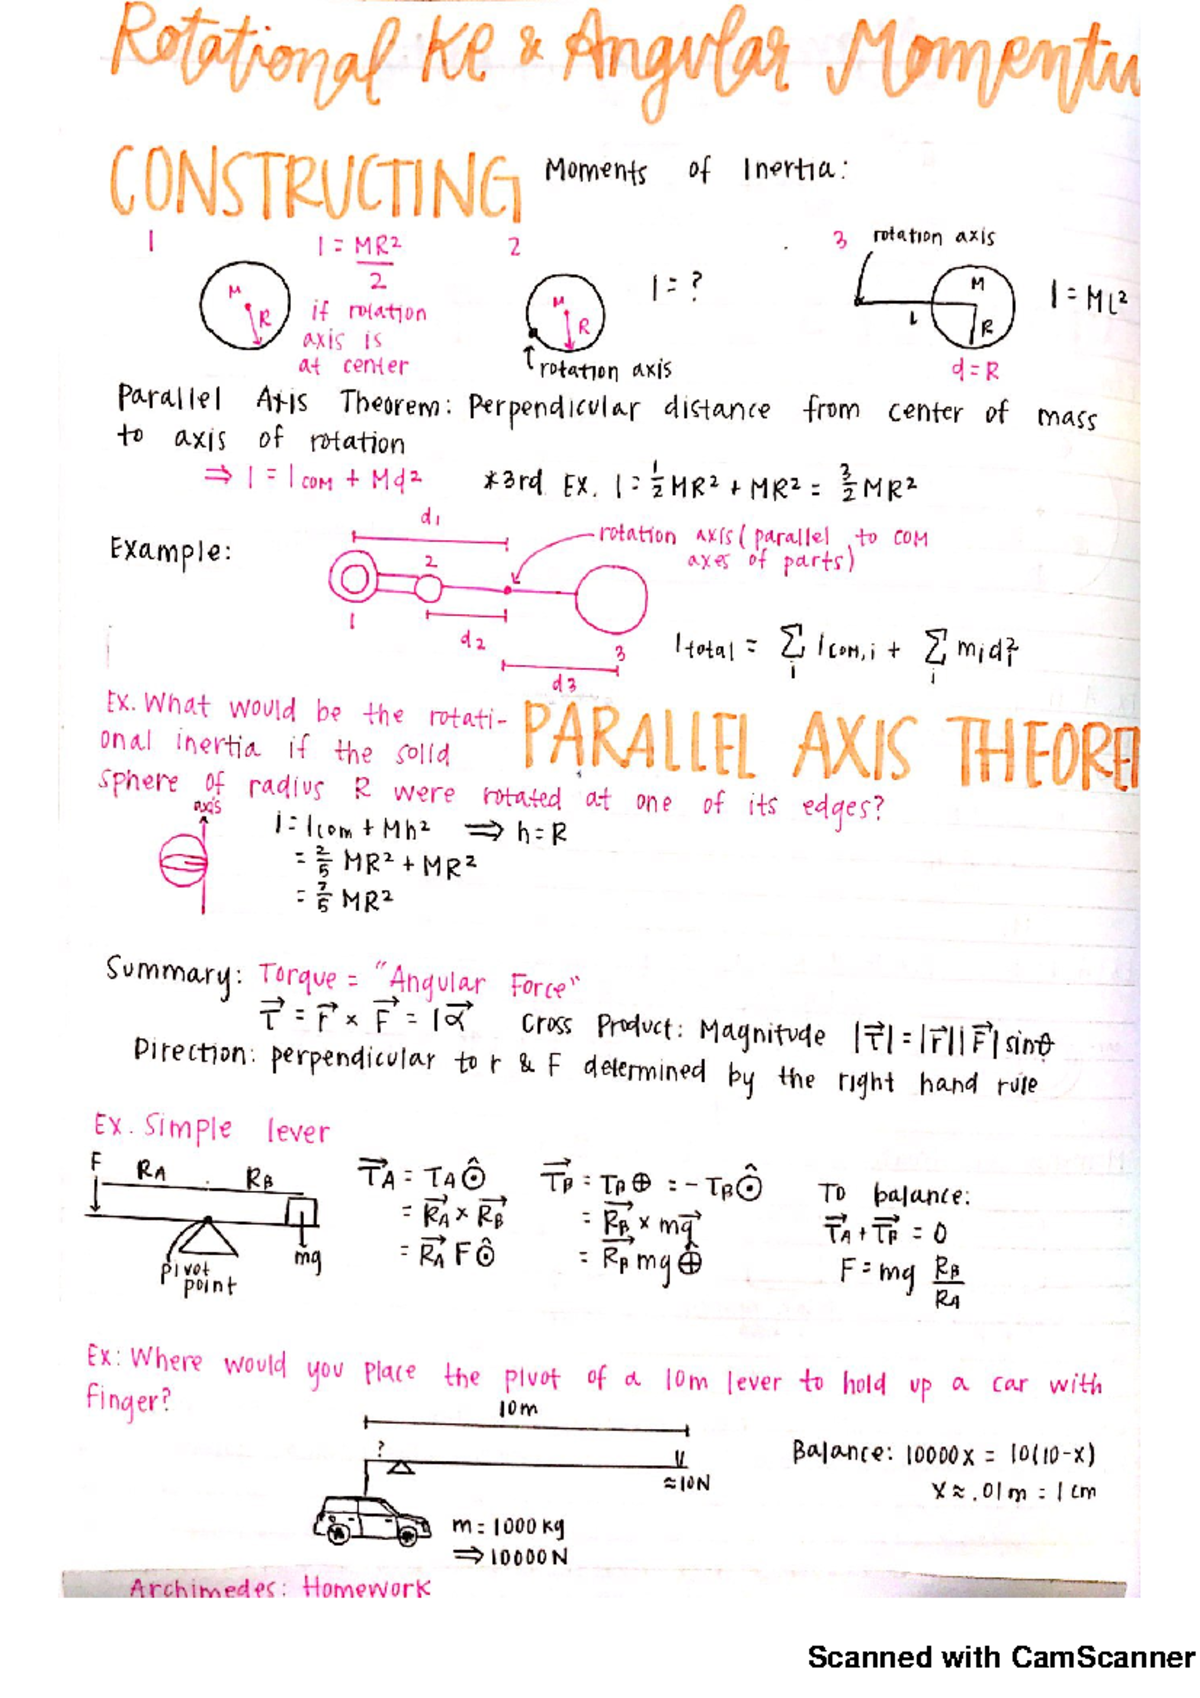 Rotational KE & Angular Momentu
CONSTRUCTING Moments of Inertia:
1 I = MR²/2 2 3 rotation axis
M R if rotation axis is at center
M R I = ?
rotation axis
M L R I = ML²
d = R
Parallel Axis Theorem: Perpendicular distance from center of mass
to axis of rotation
⇒ I = Icom + Md² *3rd Ex. I = 1/2 MR² + MR² = 3/2 MR²
d₁
Example: rotation axis (parallel to COM
axes of parts)
2
1 d₂ 3
d₃
Itotal = Σi Icom,i + Σi midi²
Ex. What would be the rotati-
onal inertia if the solid
PARALLEL AXIS THEORE
sphere of radius R were rotated at one of its edges?
axis
I = Icom + Mh² ⇒ h = R
= 2/5 MR² + MR²
= 7/5 MR²
Summary: Torque = "Angular Force"
τ⃗ = r⃗ × F⃗ = Iα⃗ Cross Product: Magnitude |τ⃗| = |r⃗||F⃗| sinθ
Direction: perpendicular to r & F determined by the right hand rule
Ex. Simple lever
F RA RB
mg
pivot
point
τ⃗A = τA⊙̂
= R⃗A × R⃗B
= R⃗A F⊙̂
τ⃗B = τB⊕ = -τB⊙̂
= R⃗B × mg⃗
= R⃗B mg⊕̂
To balance:
τ⃗A + τ⃗B = 0
F = mg RB/RA
Ex: Where would you place the pivot of a 10m lever to hold up a car with
finger?
10m
?
≈10N
m = 1000 kg
⇒ 10000N
Balance: 10000x = 10(10-x)
x ≈ .01m = 1 cm
Archimedes: Homework
Scanned with CamScanner